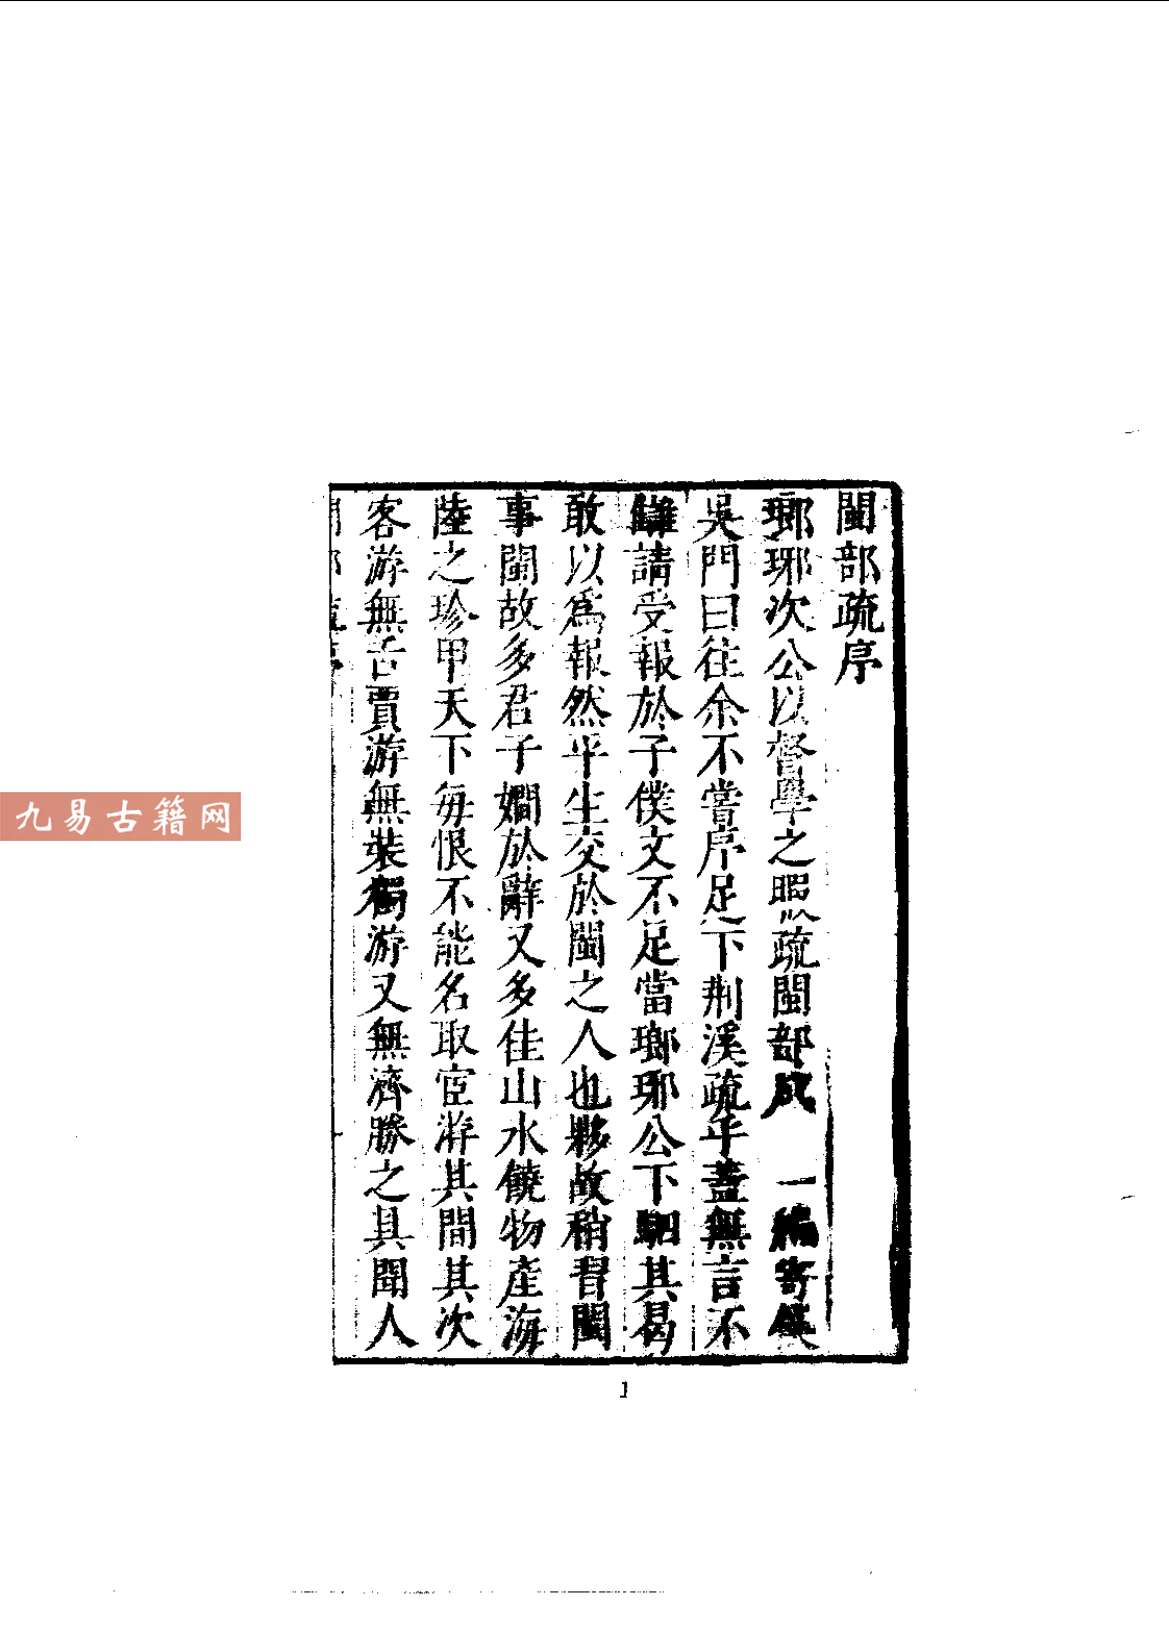 閩部疏序
瑯琊次公以督學之暇疏閩部成 一編寄僕
吳門曰往余不嘗序足下荆溪疏乎蓋無言不
讎請受報於子僕文不足當瑯琊公下駟其曷
敢以爲報然平生交於閩之人也夥故稍習閩
事閩故多君子嫺於辭又多佳山水饒物產海
陸之珍甲天下每恨不能名取宦游其間其次
客游無舌賈游無裝獨游又無濟勝之具聞人
九易古籍网
1